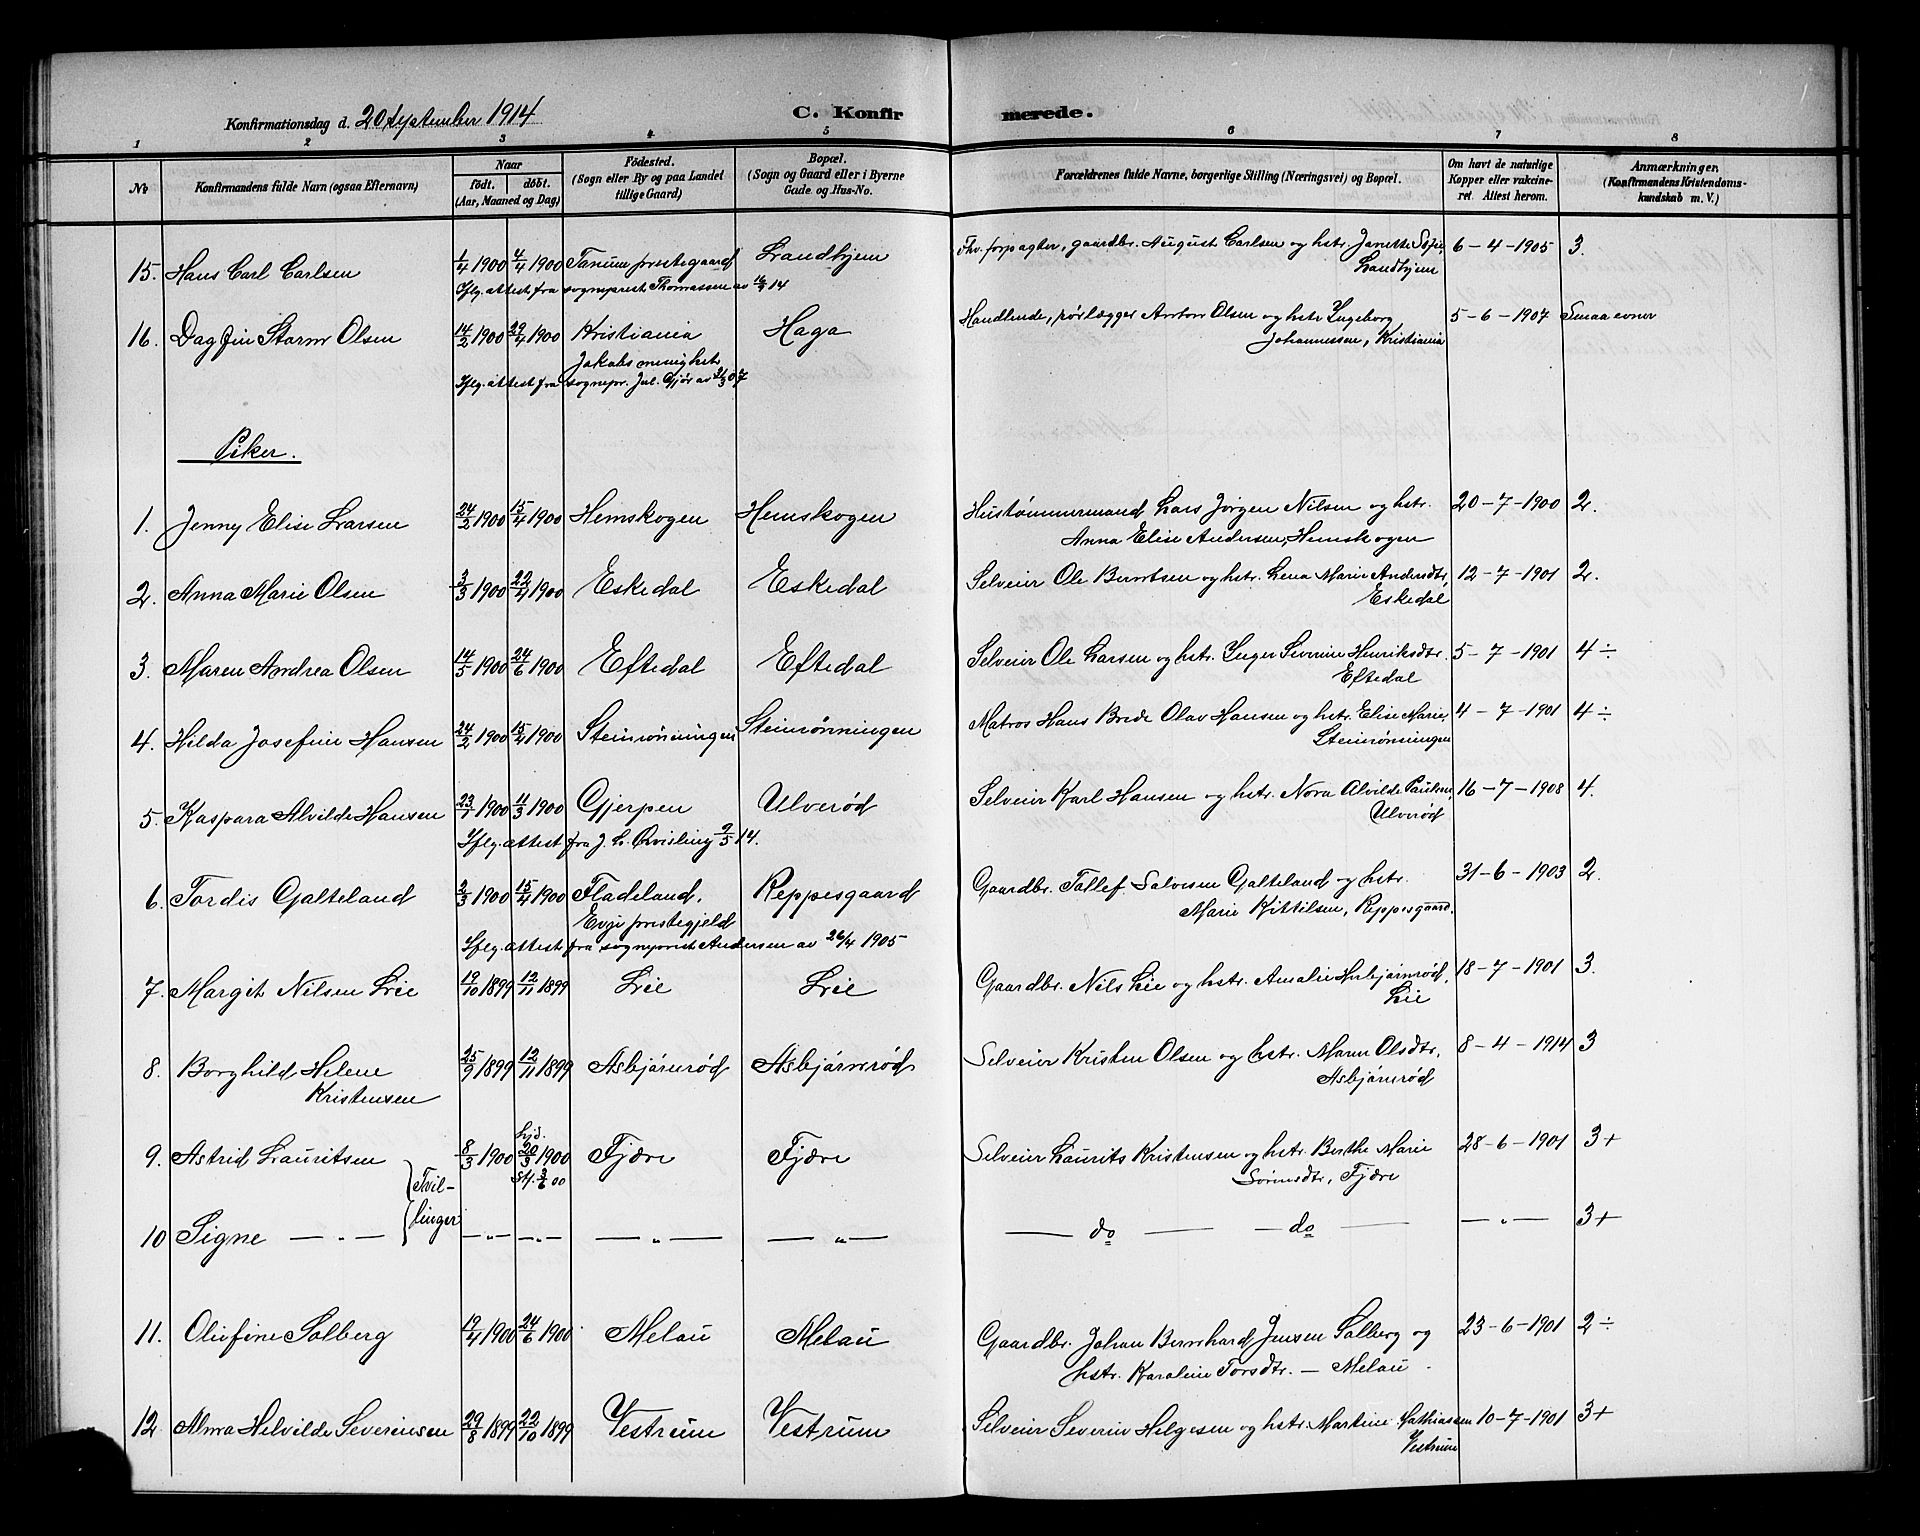 Konfirmationsdag d. 20 September 1914
C. Konfirmerede.
1 2 3 4 5 6 7 8
No
Konfirmandens fulde Navn (ogsaa Efternavn)
Naar
födt. döbt.
(Aar, Maaned og Dag)
Födested.
(Sogn eller By og paa Landet
tillige Gaard)
Bopæl.
(Sogn og Gaard eller i Byerne
Gade og Hus-No.
Forældrenes fulde Navne, borgerlige Stilling (Næringsvei) og Bopæl.
Om havt de naturlige
Kopper eller vakcine-
ret. Attest herom.
Anmærkninger.
(Konfirmandens Kristendoms-
kundskab m. V.)
15. Hans Carl Carlsen 1/4 1900 4/4 1900 Tanum prestegaard Landhjem Fhv. forpagter, gaardbr. August Carlsen og hstr. Janette Sofie, 6-4-1905 3.
Landhjem
Iflg. attest fra sogneprest Thomassen av 16/4 14
16. Dagfin Storm Olsen 14/2 1900 29/4 1900 Kristiania Haga Handlende, rörlægger Anton Olsen og hstr Ingeborg 5-6-1907 Smaa evner
Johannessen, Kristiania
Jakobs menighet
Iflg. attest fra sognepr. Jul. Gjör av 2/3 07
Piker.
1. Jenny Elise Larsen 24/2 1900 15/4 1900 Hemskogen Hemskogen Hustømmermand Lars Jörgen Nilsen og hstr. 20-7-1900 2.
Anna Elise Andersen, Hemskogen
2. Anna Marie Olsen 3/3 1900 22/4 1900 Eskedal Eskedal Selveier Ole Berntsen og hstr. Lena Marie Andersdtr, 12-7-1901 2.
Eskedal
3. Maren Andrea Olsen 14/5 1900 24/6 1900 Eftedal Eftedal Selveier Ole Larsen og hstr. Inger Severine Henriksdtr. 5-7-1901 4÷
Eftedal
4. Hilda Josefine Hansen 24/2 1900 15/4 1900 Steinrönningen Steinrönningen Matros Hans Brede Olav Hansen og hstr. Elise Marie, 4-7-1901 4÷
Steinrönningen
5. Kaspara Alvilde Hansen 23/1 1900 11/3 1900 Gjerpen Ulveröd Selveier Karl Hansen og hstr. Nora Alvilde Paulsen, 16-7-1908 4.
Ulveröd
Iflg. attest fra J. L. Qvisling 9/5 14.
6. Tordis Galteland 2/3 1900 15/4 1900 Fladeland, Reppesgaard Gaardbr. Tallef Salvesen Galteland og hstr. 31-6-1903 2.
Marie Kittilsen, Reppesgaard.
Evje prestegjeld
Iflg. attest fra sogneprest Andersen av 26/4 1905
7. Margit Nilsen Lie 19/10 1899 12/11 1899 Lie Lie Gaardbr. Nils Lie og hstr. Amalie Asbjörnröd, 18-7-1901 3.
Lie
8. Borghild Helene 25/9 1899 12/11 1899 Asbjörnröd Asbjörnröd Selveier Kristen Olsen og hstr. Maren Olsdtr, 8-4-1914 3
Kristensen Asbjörnröd
9. Astrid Lauritsen 8/3 1900 hjd. 20/3 1900 Fjære Fjære Selveier Laurits Kristensen og hstr. Berthe Marie 28-6-1901 3+
Stf. 3/6 00 Sörensdtr, Fjære
Tvil-
linger
10 Signe — „ — — „ — — „ — — „ — — „ — — do — — do — — „ — 3+
11. Olufine Solberg 19/4 1900 24/6 1900 Melau Melau Gaardbr. Johan Bernhard Jensen Solberg og 23-6-1901 2÷
hstr. Karoline Torsdtr. — Melau.
12. Alma Helvilde Severinsen 29/8 1899 22/10 1899 Vestrum Vestrum Selveier Severin Helgesen og hstr. Martine Mathiassen 10-7-1901 3+
Vestrum